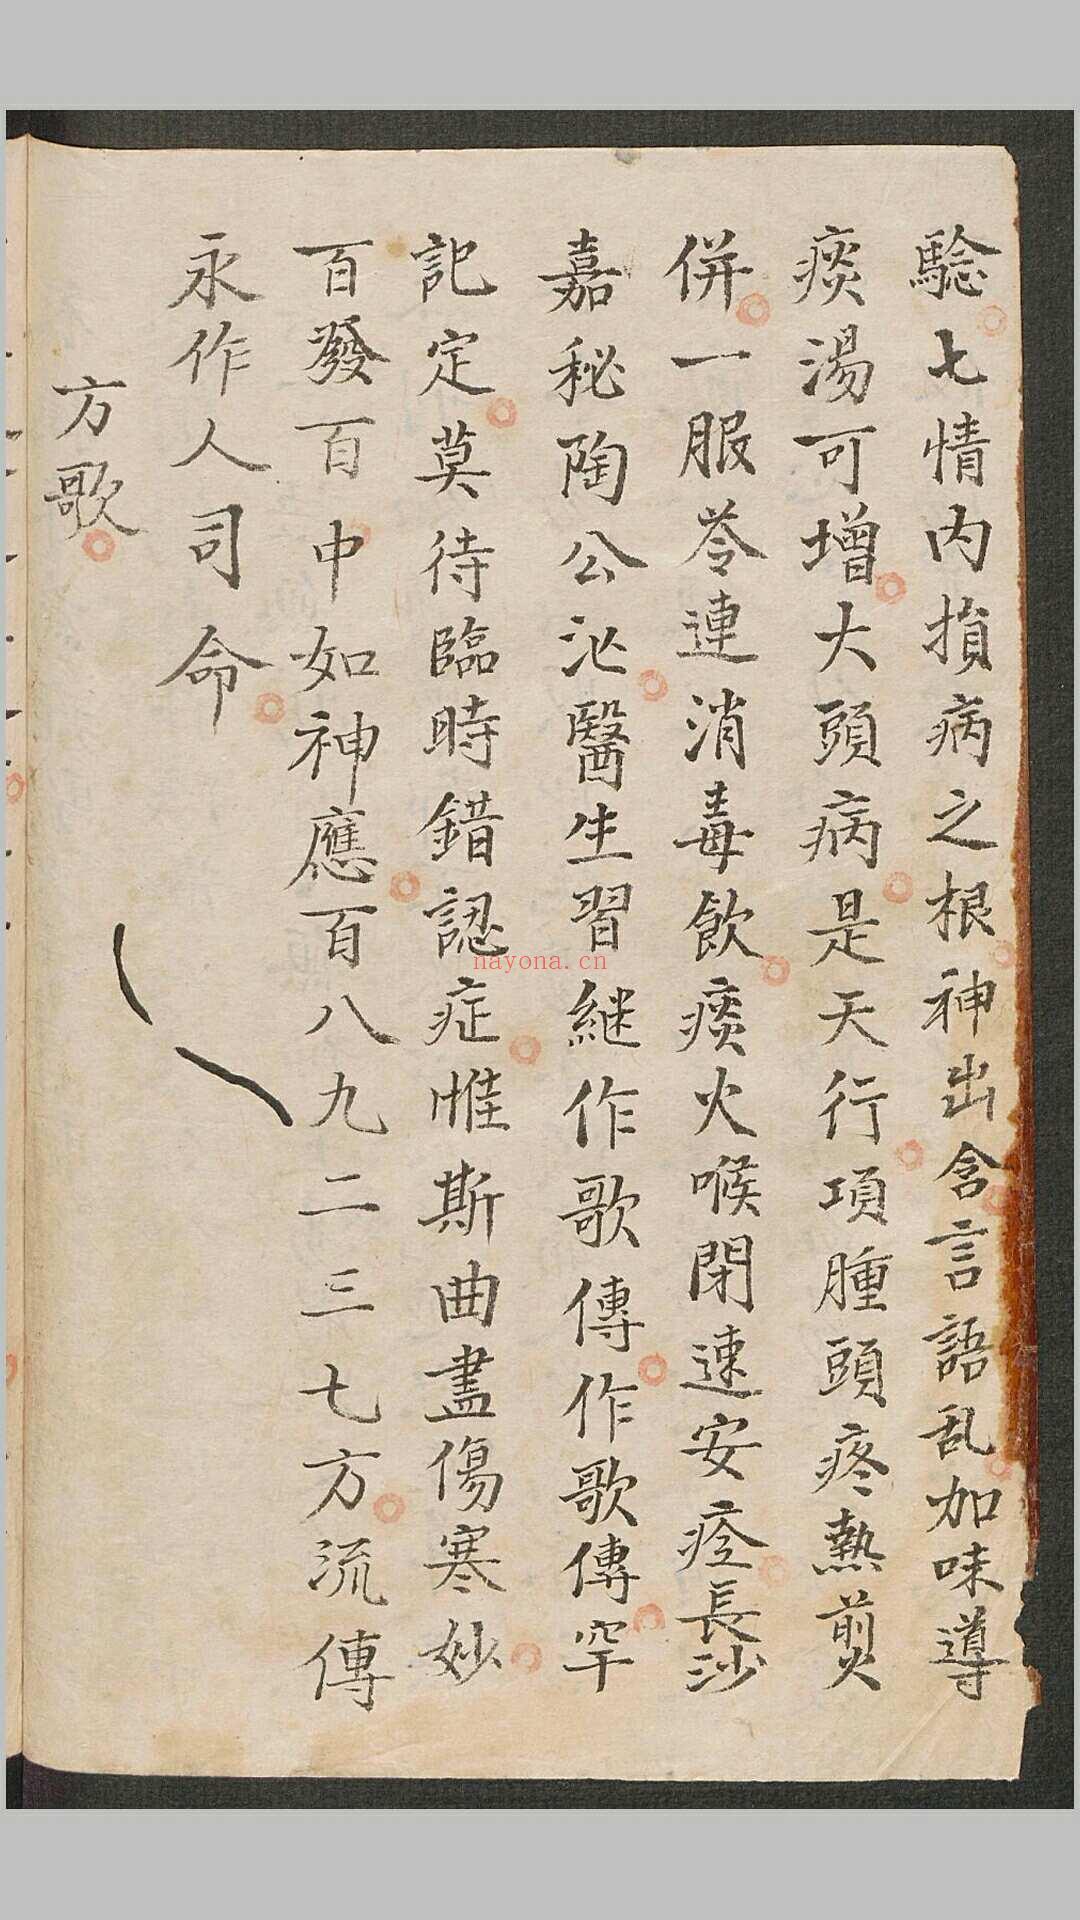 騐七情内損病之根神出舍言語乱加味導
痰湯可增大頭病是天行項腫頭疼熱煎
併一服苓連消毒飲痰火喉閉速安痊長沙
嘉秘陶公泌醫生習継作歌傳作歌傳罕
記定莫待臨時錯認症惟斯曲盡傷寒妙
百發百中如神應百八九二三七方流傳
永作人司命
方歌
nayona.cn